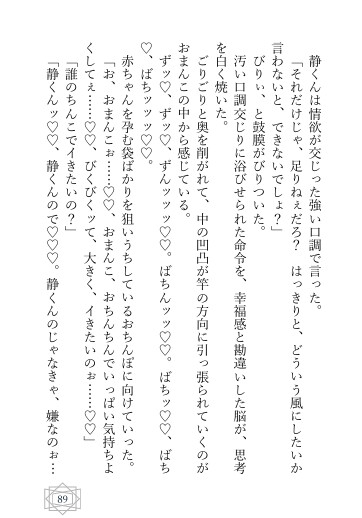 静くんは情欲が交じった強い口調で言った。
「それだけじゃ、足りねぇだろ? はっきりと、どういう風にしたいか
言わないと、できないでしょ?」
びりぃ、と鼓膜がびりついた。
汚い口調交じりに浴びせられた命令を、幸福感と勘違いした脳が、思考
を白く焼いた。
ごりごりと奥を削がれて、中の凹凸が竿の方向に引っ張られていくのが
おまんこの中から感じている。
ずッ♡、ずッ♡、ずんッッ♡♡。ばちんッッ♡♡。ばちッ♡♡、ばち
♡、ばちッッッ♡♡。
赤ちゃんを孕む袋ばかりを狙いうちしているおちんぽに向けていった。
「お、おまんこぉ……♡♡、おまんこ、おちんちんでいっぱい気持ちよ
くしてぇ……♡♡、びくびくッて、大きく、イきたいのぉ……♡♡」
「誰のちんこでイきたいの?」
「静くんッ♡♡、静くんので♡♡♡。静くんのじゃなきゃ、嫌なのぉ…
89